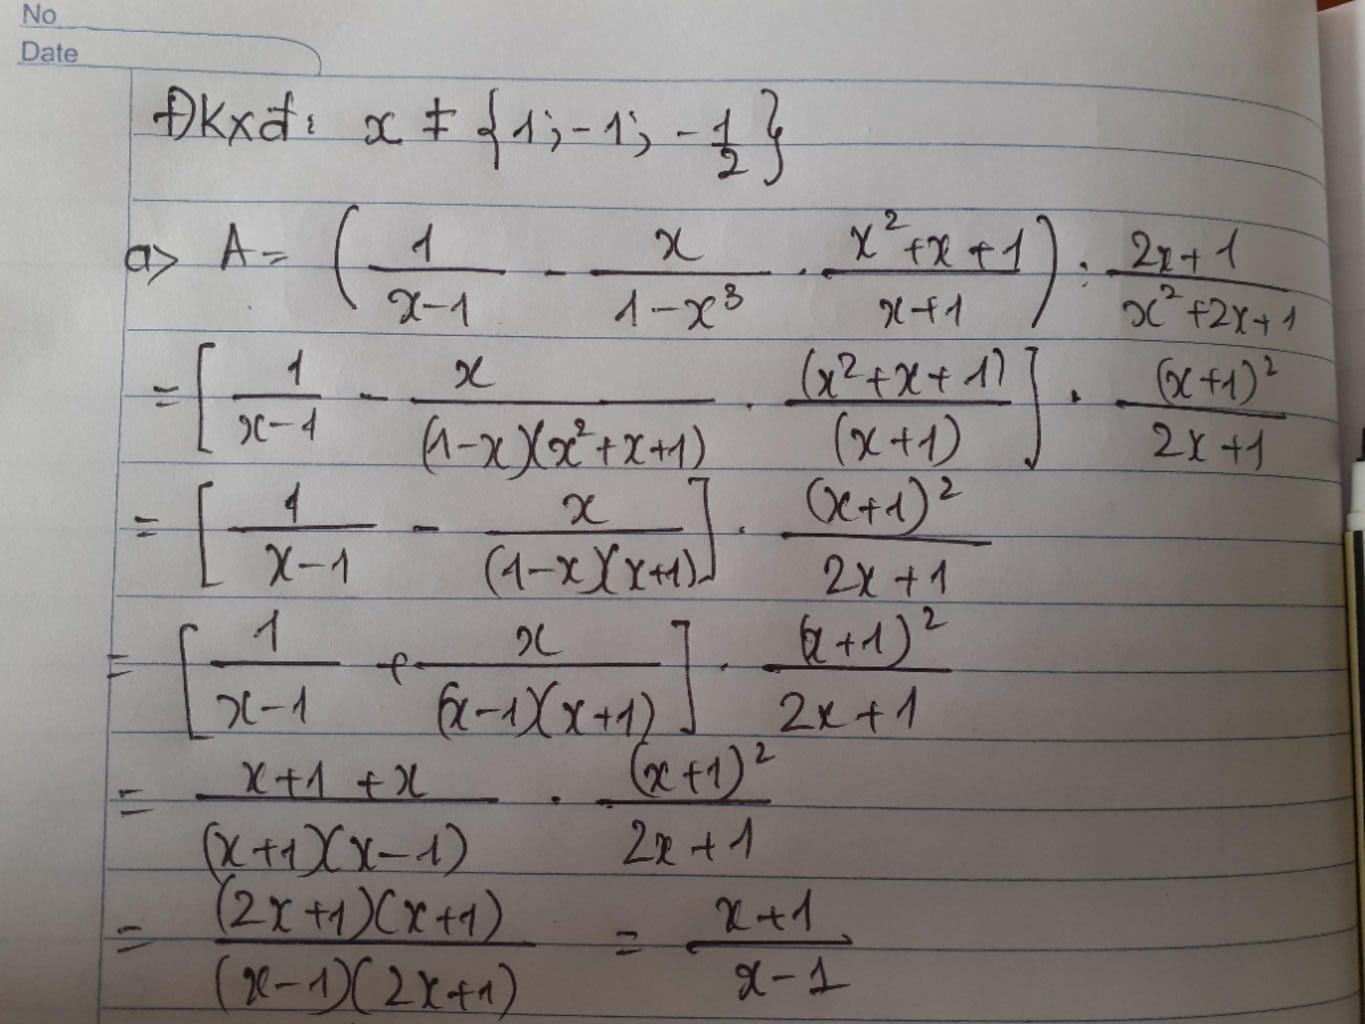 No
Date
ĐKXĐ: x ≠ {1; -1; -1/2}
a> A = ( 1/(x-1) - x/(1-x³) · (x²+x+1)/(x+1) ) : (2x+1)/(x²+2x+1)
= [ 1/(x-1) - x/((1-x)(x²+x+1)) · (x²+x+1)/(x+1) ] · (x+1)²/(2x+1)
= [ 1/(x-1) - x/((1-x)(x+1)) ] · (x+1)²/(2x+1)
= [ 1/(x-1) + x/((x-1)(x+1)) ] · (x+1)²/(2x+1)
= (x+1+x)/((x+1)(x-1)) · (x+1)²/(2x+1)
= ((2x+1)(x+1))/((x-1)(2x+1)) = (x+1)/(x-1)